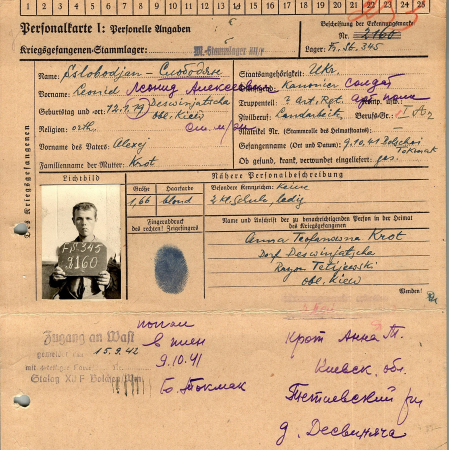 1 2 3 4 5 6 7 8 9 10 11 12 13 14 15 16 17 18 19 20 21 22 23 24 25
Personalkarte I: Personelle Angaben
Beschriftung der Erkennungsmarke
Nr. 2160
Kriegsgefangenen-Stammlager:
Lager: Fr. St. 345
Des Kriegsgefangenen
Name: Sslobodjan – Слободян
Staatsangehörigkeit: Ukr.
Vorname: Leonid Леонид Алексеевич
Dienstgrad: Kanonier солдат
Geburtstag und -ort: 12.1.19 Deswinjatscha
Truppenteil: ? Art. Rgt.
obl. Kiew
Zivilberuf: Berufs-Gr.:
Religion: orth.
Matrikel Nr. (Stammrolle des Heimatstaates):
Vorname des Vaters: Alexej
Gefangennahme (Ort und Datum): 9.10.41 Bolschoi Tokmak
Familienname der Mutter: Krot
Ob gesund, krank, verwundet eingeliefert: ges.
Lichtbild
Nähere Personalbeschreibung
Größe
Haarfarbe
Besondere Kennzeichen: keine
1,66
blond
ledig
FSt 345
2160
Fingerabdruck
des rechten! Zeigefingers
Name und Anschrift der zu benachrichtigenden Person in der Heimat
des Kriegsgefangenen
Anna Teofanowna Krot
Dorf Deswinjatscha
Rayon Tetijewski
obl. Kiew
Wenden!
Zugang an Wast
gemeldet am 15.9.42
попал
в плен
9.10.41
Б. Токмак
Крот Анна Т.
Киевск. обл.
Тетиевский р-н
д. Десвиняча